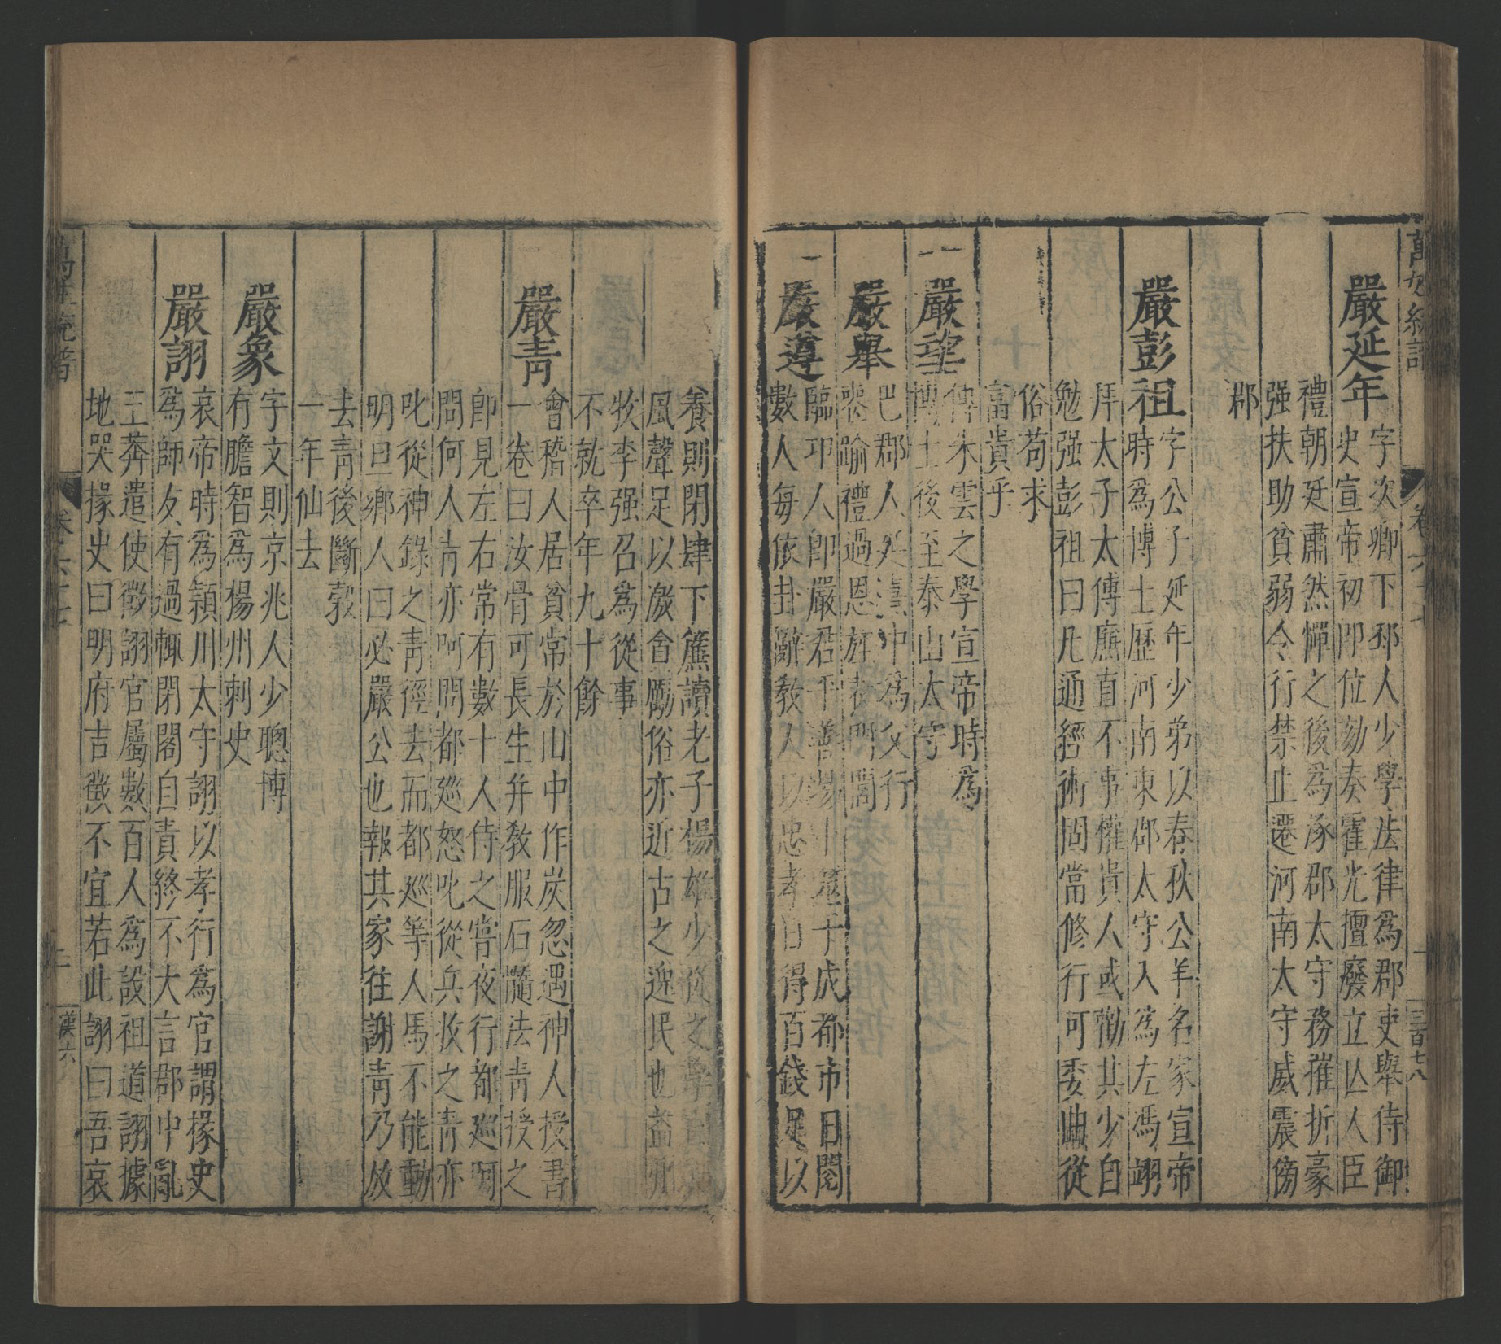 萬姓統譜
卷六十七
嚴延年
字次卿下邳人少學法律爲郡吏舉侍御
史宣帝初即位劾奏霍光擅廢立亾人臣
禮朝廷肅然憚之後爲涿郡太守務摧折豪
强扶助貧弱令行禁止遷河南太守威震傍
郡
嚴彭祖
字公子延年少弟以春秋公羊名家宣帝
時爲博士歷河南東郡太守入爲左馮翊
拜太子太傅廉直不事權貴人或勸其少自
勉强彭祖曰凡通經術固當修行何委曲從
俗苟求
富貴乎
嚴望
傳朱雲之學宣帝時爲
博士後至泰山太守
嚴舉
巴郡人
嚴遵
臨邛人即嚴君平
數人每依卦辭教人以忠孝日得百錢足以
養則閉肆下簾讀老子楊雄少從之學
風聲足以激貪勵俗亦近古之逸民也
牧李强召爲從事
不就卒年九十餘
嚴青
會稽人居貧常於山中作炭忽遇神人授書
一卷曰汝骨可長生并教服石髓法青授之
即見左右常有數十人侍之嘗夜行都巡呵
問何人青亦呵問都巡怒叱從兵收之青亦
叱從神錄之青徑去而都巡等人馬不能動
明旦鄉人曰必嚴公也報其家往謝青乃放
去青後斷穀
一年仙去
嚴象
字文則京兆人少聰博
有膽智爲揚州刺史
嚴詡
哀帝時爲頴川太守詡以孝行爲官謂掾史
爲師友有過輒閉閣自責終不大言郡中亂
王莽遣使徵詡官屬數百人爲設祖道詡據
地哭掾史曰明府吉徵不宜若此詡曰吾哀
漢六